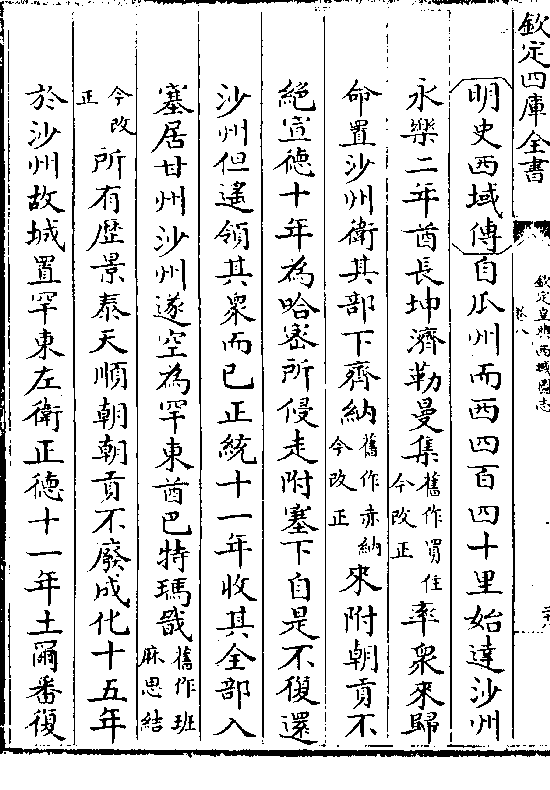 欽定四庫全書
欽定皇輿西域圖志
卷八
明史西域傳自瓜州而西四百四十里始達沙州
永樂二年酋長坤濟勒曼集舊作買住今改正率衆來歸
命置沙州衛其部下齊納舊作赤納今改正來附朝貢不
絶宣德十年為哈密所侵走附塞下自是不復還
沙州但遙領其衆而已正統十一年收其全部入
塞居甘州沙州遂空為罕東酋巴特瑪戩舊作班麻思結
今改正所有歴景泰天順朝朝貢不廢成化十五年
於沙州故城置罕東左衛正德十一年土爾番復